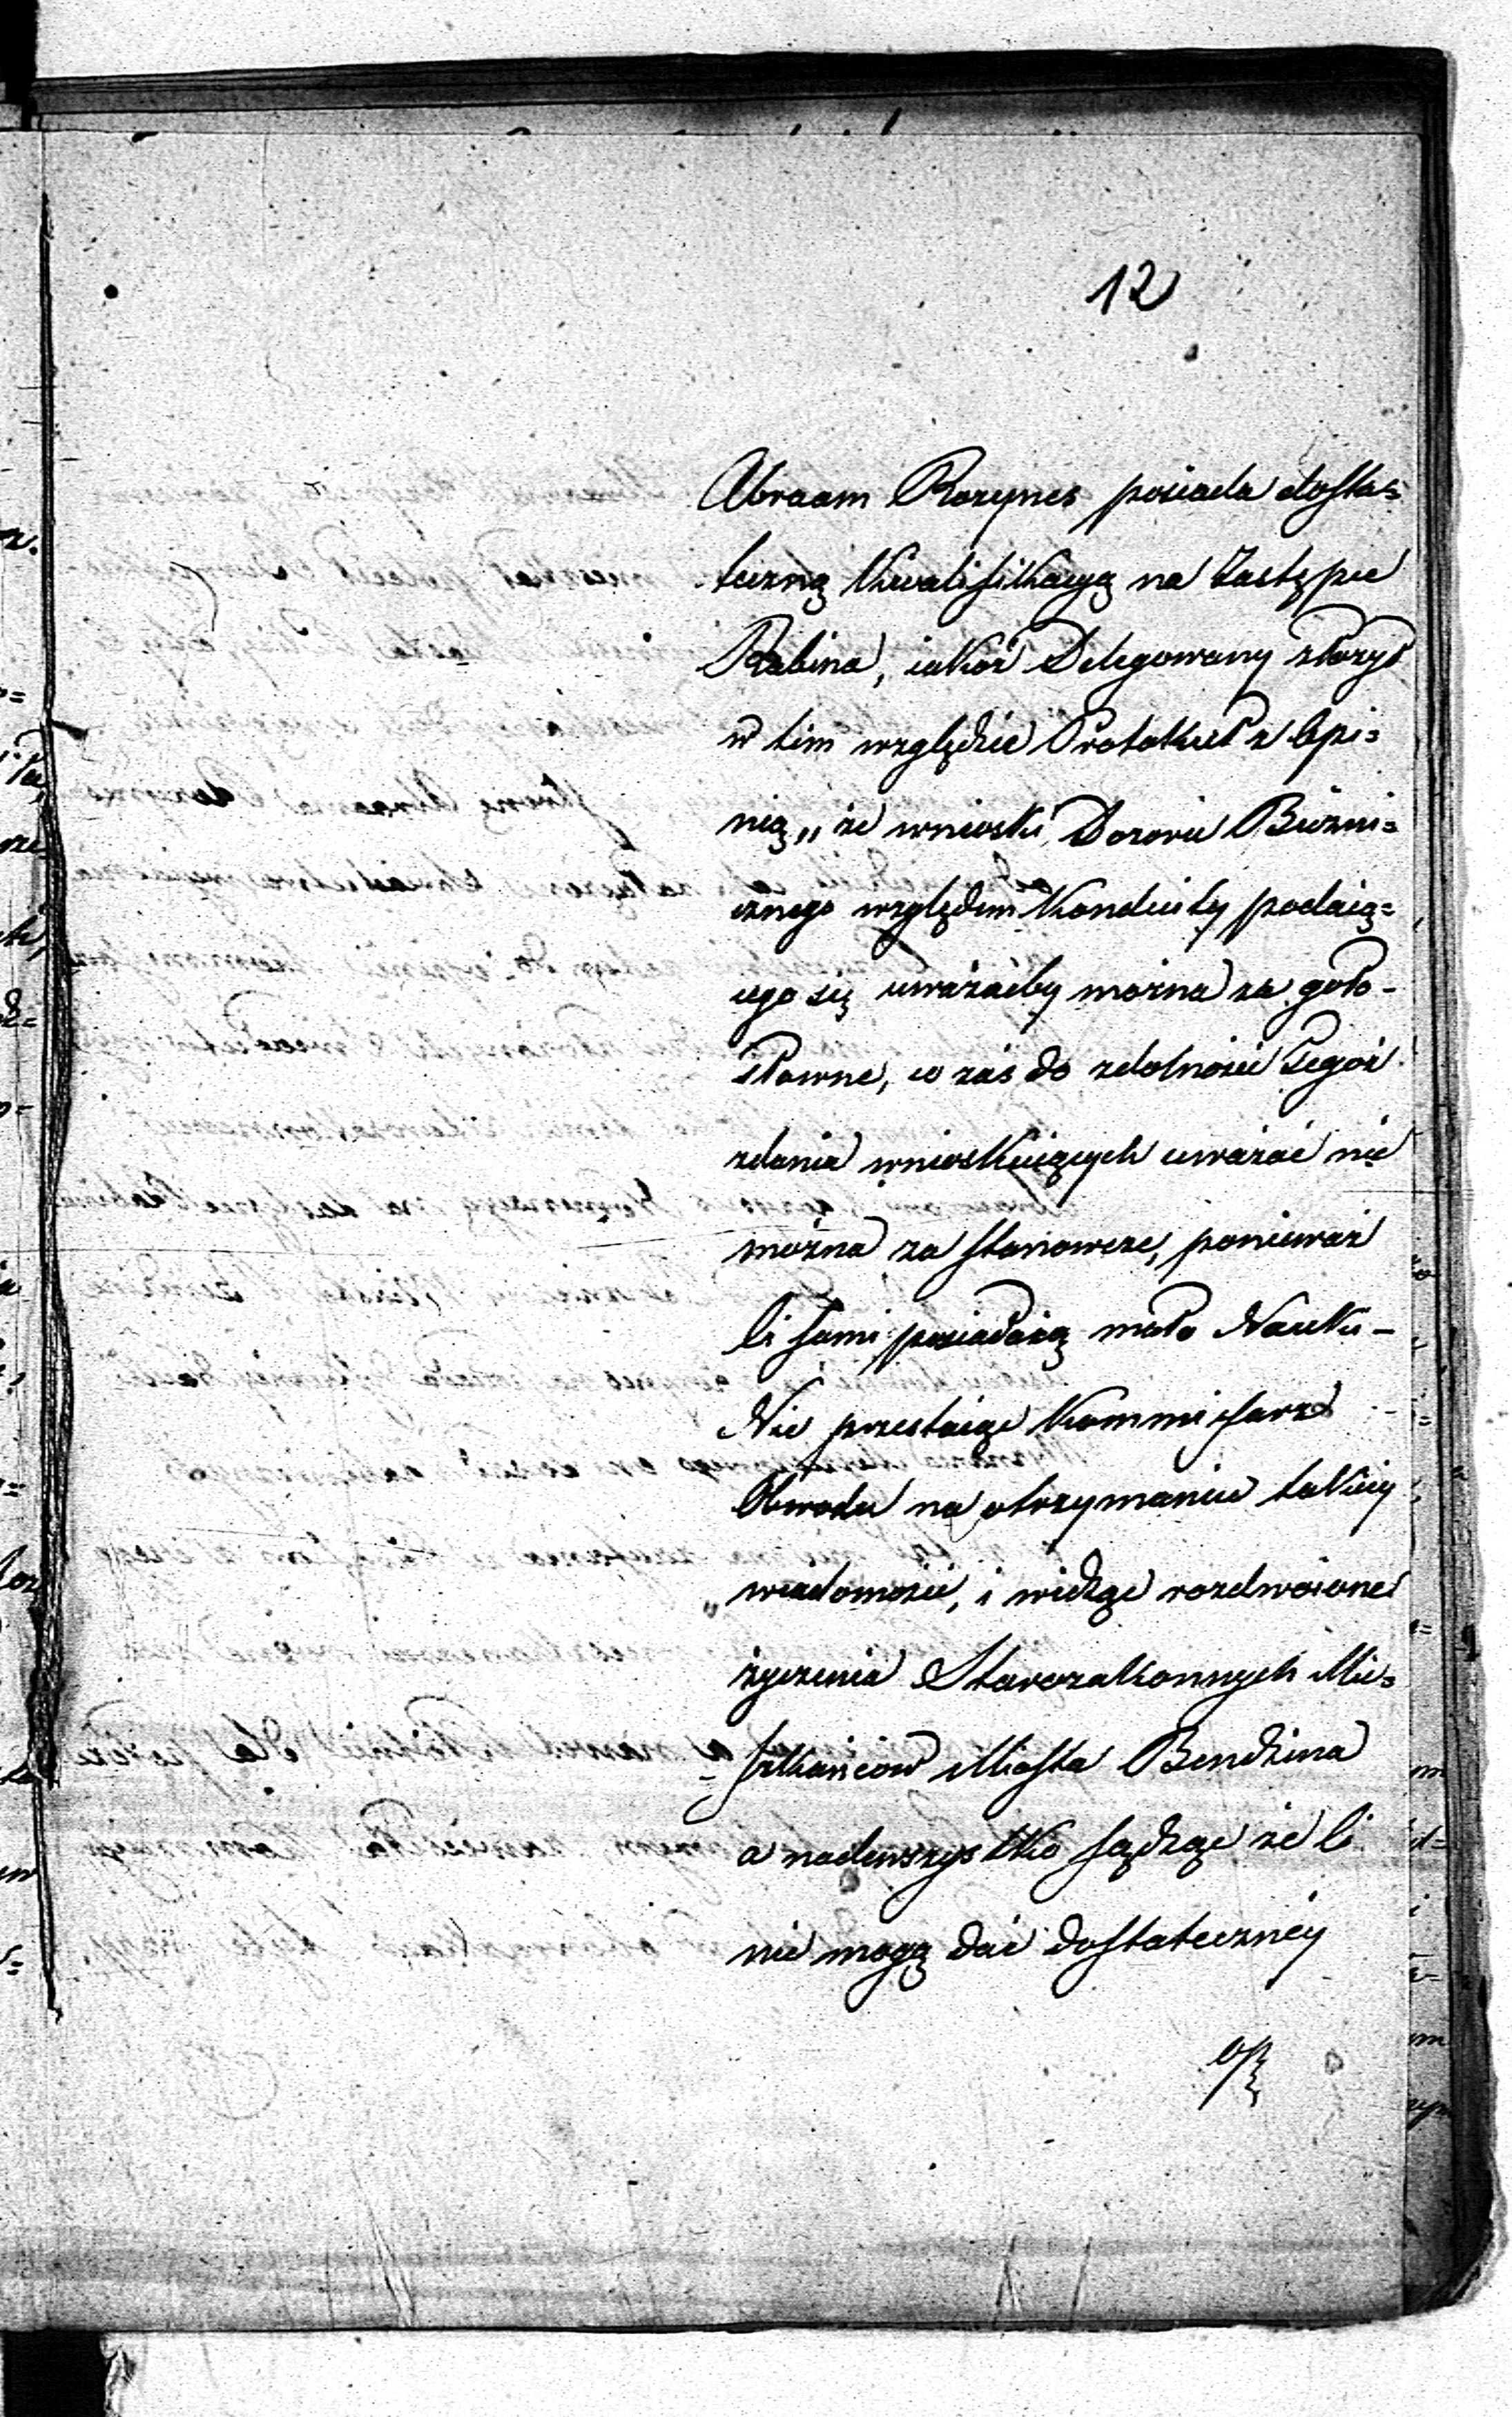 12
Abraam Rozynes posiada dosta=
teczną Kwalifikacyą na Zastępce
Rabina, iakoż Delegowany złożył
w tim względzie Protokuł z Opi=
nią „ że wnioski Dozoru Bużni=
cznego względem Konduity podaią=
cego się uważaćby można za goło-
słowne, co zaś do zdolności Tegoż
zdania wnioskuiących uważać nie
można za stanowcze, ponieważ
Ci sami posiadaią mało Nauki -
Nie przestaiąc Kommissarz
Obwodu na otrzymaniu takiey
wiadomości, i widząc rozdwoione
życzenia Starozakonnych Mie=
szkańców Miasta Bendzina
a nadewszystko sądząc że Ci
nie mogą dać dostateczney